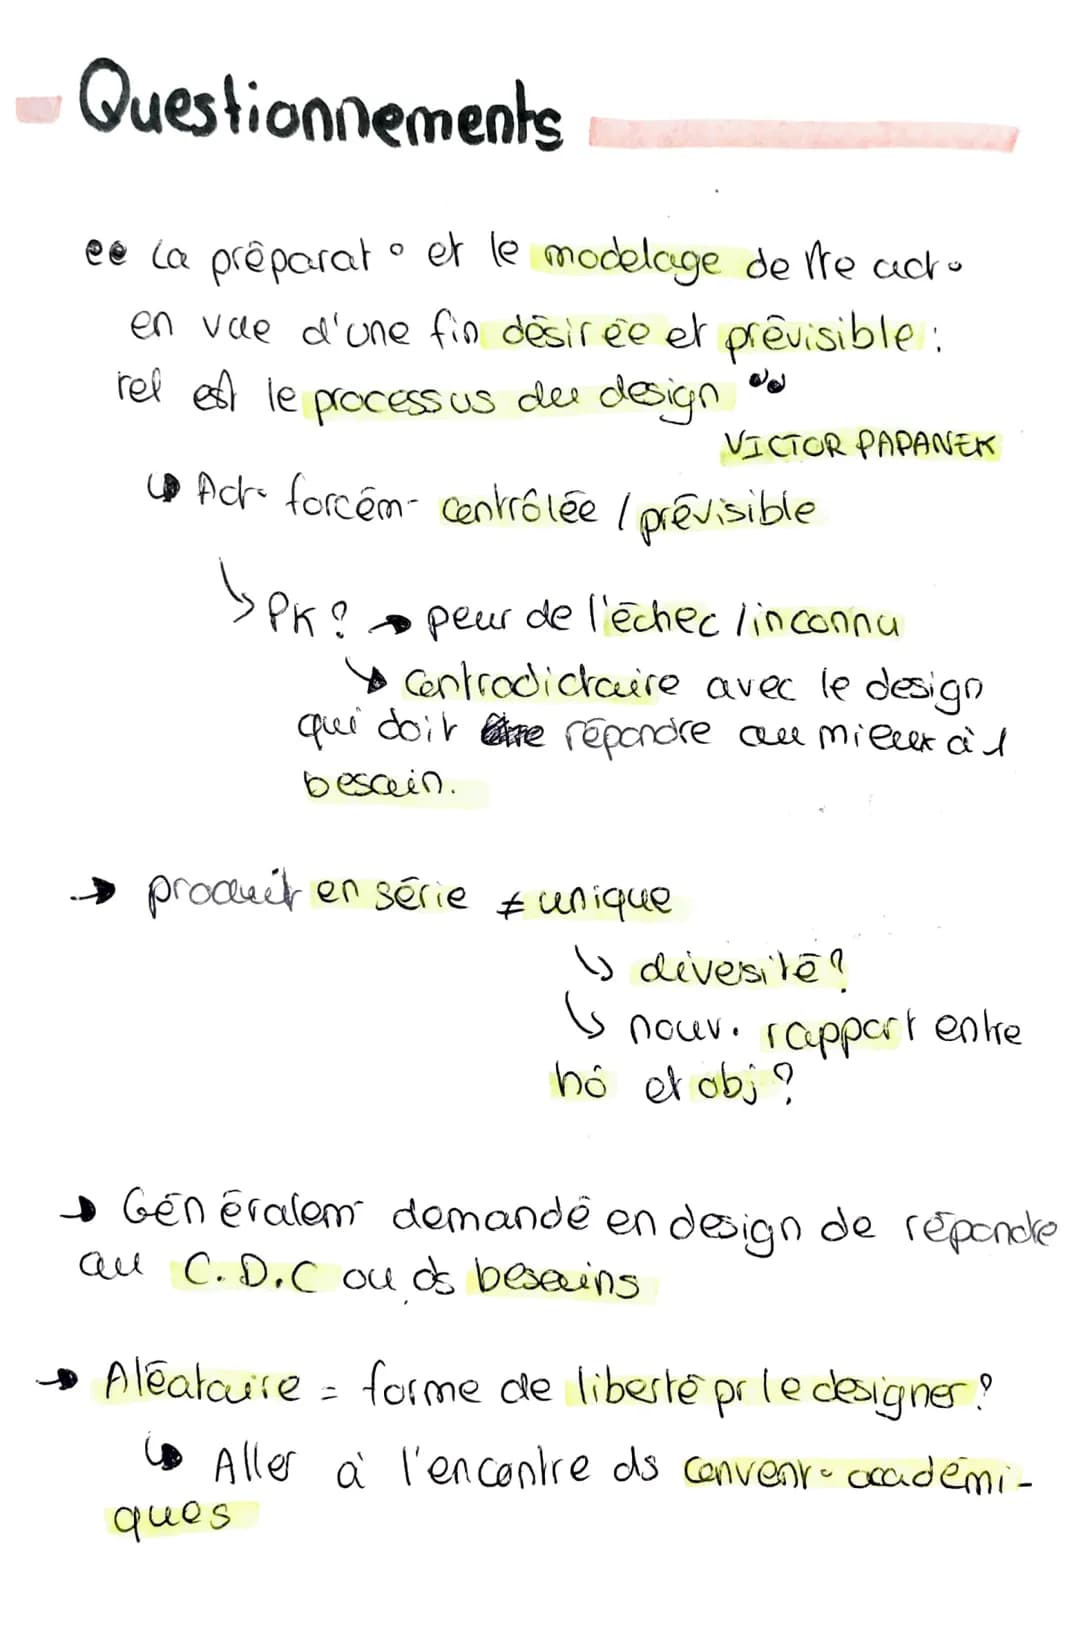 Questionnements
“ La préparat° et le modelage de tte act°
en vue d'une fin désirée et prévisible :
tel est le processus du design ”
VICTOR PAPANEK
↳ Act° forcém- contrôlée / prévisible
↳ PK ? → peur de l'échec / inconnu
↳ contradictoire avec le design
qui doit répondre au mieux à 1
besoin.
→ produit en série ≠ unique
↳ diversité ?
↳ nouv. rapport entre
hô et obj ?
→ Généralem- demandé en design de répondre
au C.D.C ou ds besoins
→ Aléatoire = forme de liberté pr le designer ?
↳ Aller à l'encontre ds convent° académi-
ques